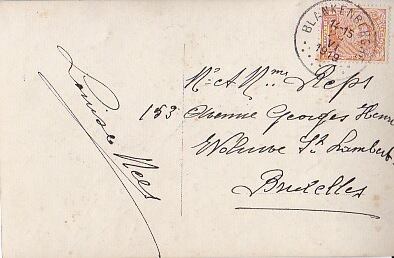 BLANKENBERGE
1919
Louise Nees
Mr et Mme Reps
153 Avenue Georges Henri
Woluwe St Lambert
Bruxelles